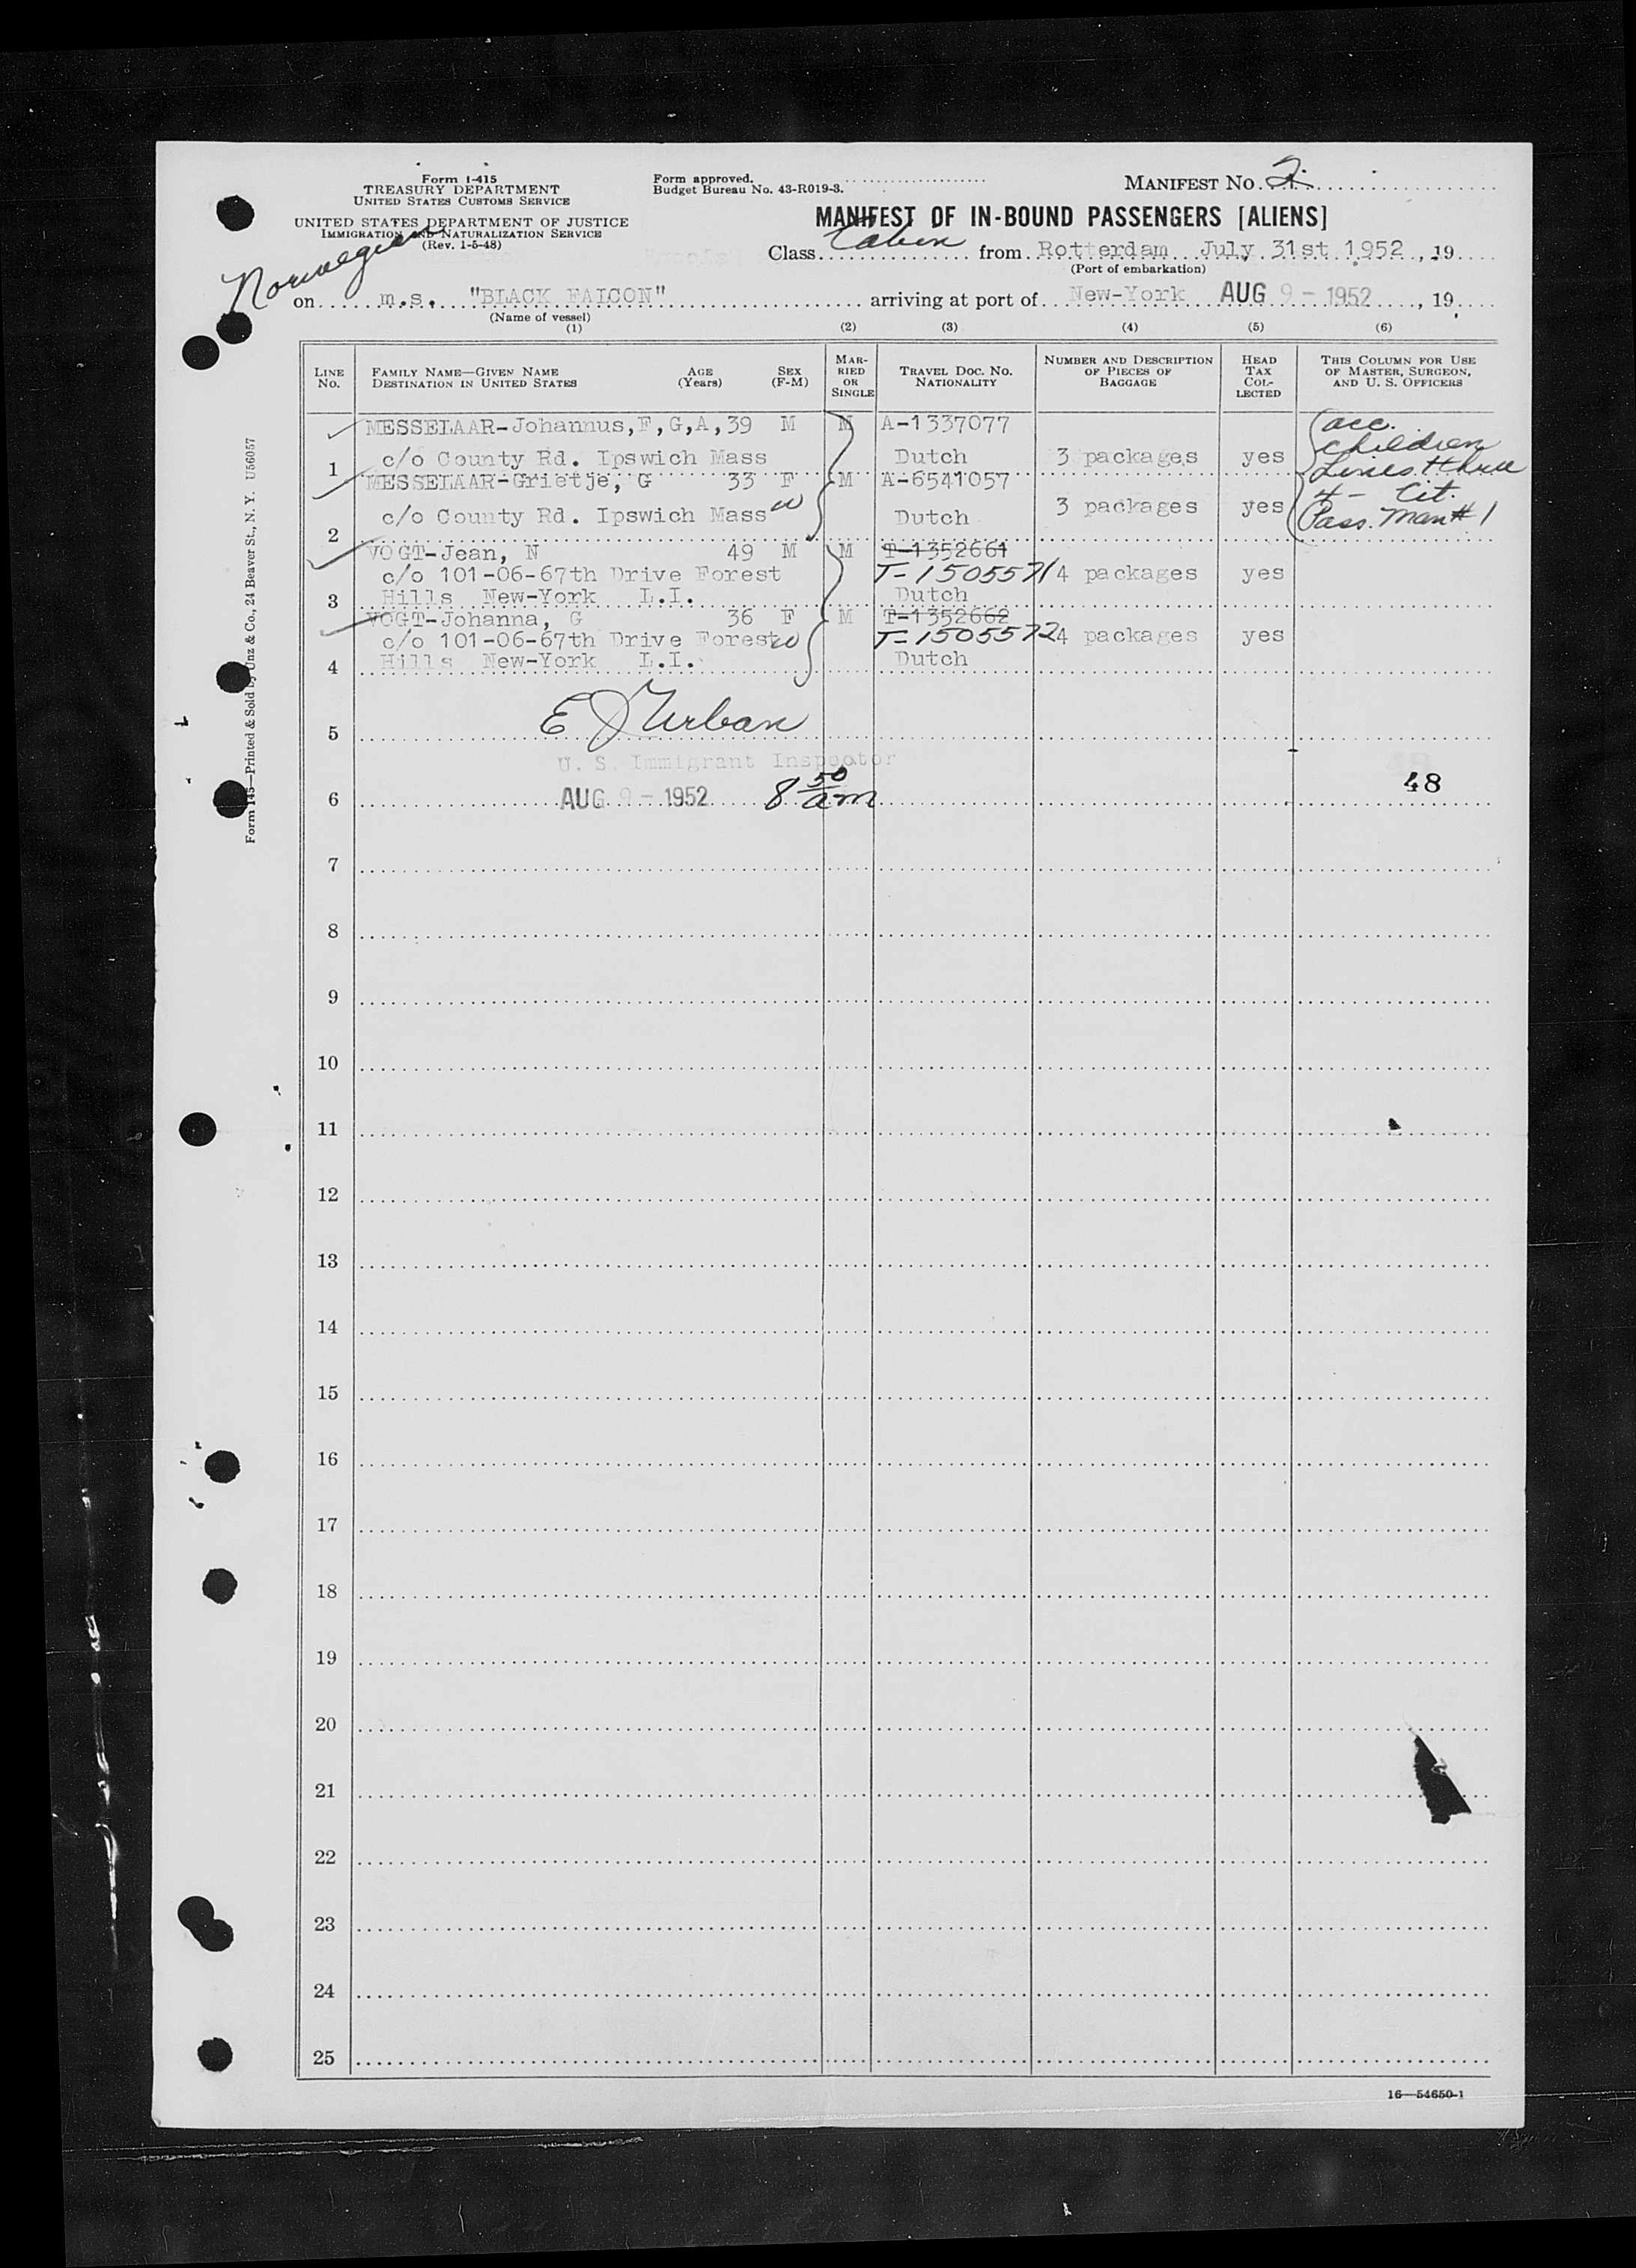 Form I-415
TREASURY DEPARTMENT
UNITED STATES CUSTOMS SERVICE
UNITED STATES DEPARTMENT OF JUSTICE
IMMIGRATION AND NATURALIZATION SERVICE
(Rev. 1-5-48)
Norwegian
Form approved.
Budget Bureau No. 43-R019-3.
MANIFEST NO. 2
MANIFEST OF IN-BOUND PASSENGERS [ALIENS]
Class Cabin from Rotterdam July 31st 1952, 19
(Port of embarkation)
on m.s. "BLACK FALCON" arriving at port of New-York AUG 9 - 1952, 19
(Name of vessel)
(1) (2) (3) (4) (5) (6)
LINE NO.
FAMILY NAME—GIVEN NAME
DESTINATION IN UNITED STATES
AGE (Years)
SEX (F-M)
MARRIED OR SINGLE
TRAVEL DOC. NO.
NATIONALITY
NUMBER AND DESCRIPTION OF PIECES OF BAGGAGE
HEAD TAX COLLECTED
THIS COLUMN FOR USE OF MASTER, SURGEON, AND U. S. OFFICERS
MESSELAAR-Johannus,F,G,A,39 M M A-1337077
1 c/o County Rd. Ipswich Mass Dutch 3 packages yes
MESSELAAR-Grietje, G 33 F M A-6541057
2 c/o County Rd. Ipswich Mass w Dutch 3 packages yes
acc.
children
Lines three
4 - Cit.
Pass. Man # 1
VOGT-Jean, N 49 M M T-1352661
c/o 101-06-67th Drive Forest T-1505571 4 packages yes
3 Hills New-York L.I. Dutch
VOGT-Johanna, G 36 F M T-1352662
c/o 101-06-67th Drive Forest w T-1505572 4 packages yes
4 Hills New-York L.I. Dutch
5 E J Urban
U. S. Immigrant Inspector
6 AUG 9 - 1952 8 50 am 48
7
8
9
10
11
12
13
14
15
16
17
18
19
20
21
22
23
24
25
16—54650-1
Form 145—Printed & Sold by Unz & Co., 24 Beaver St., N. Y. U56057